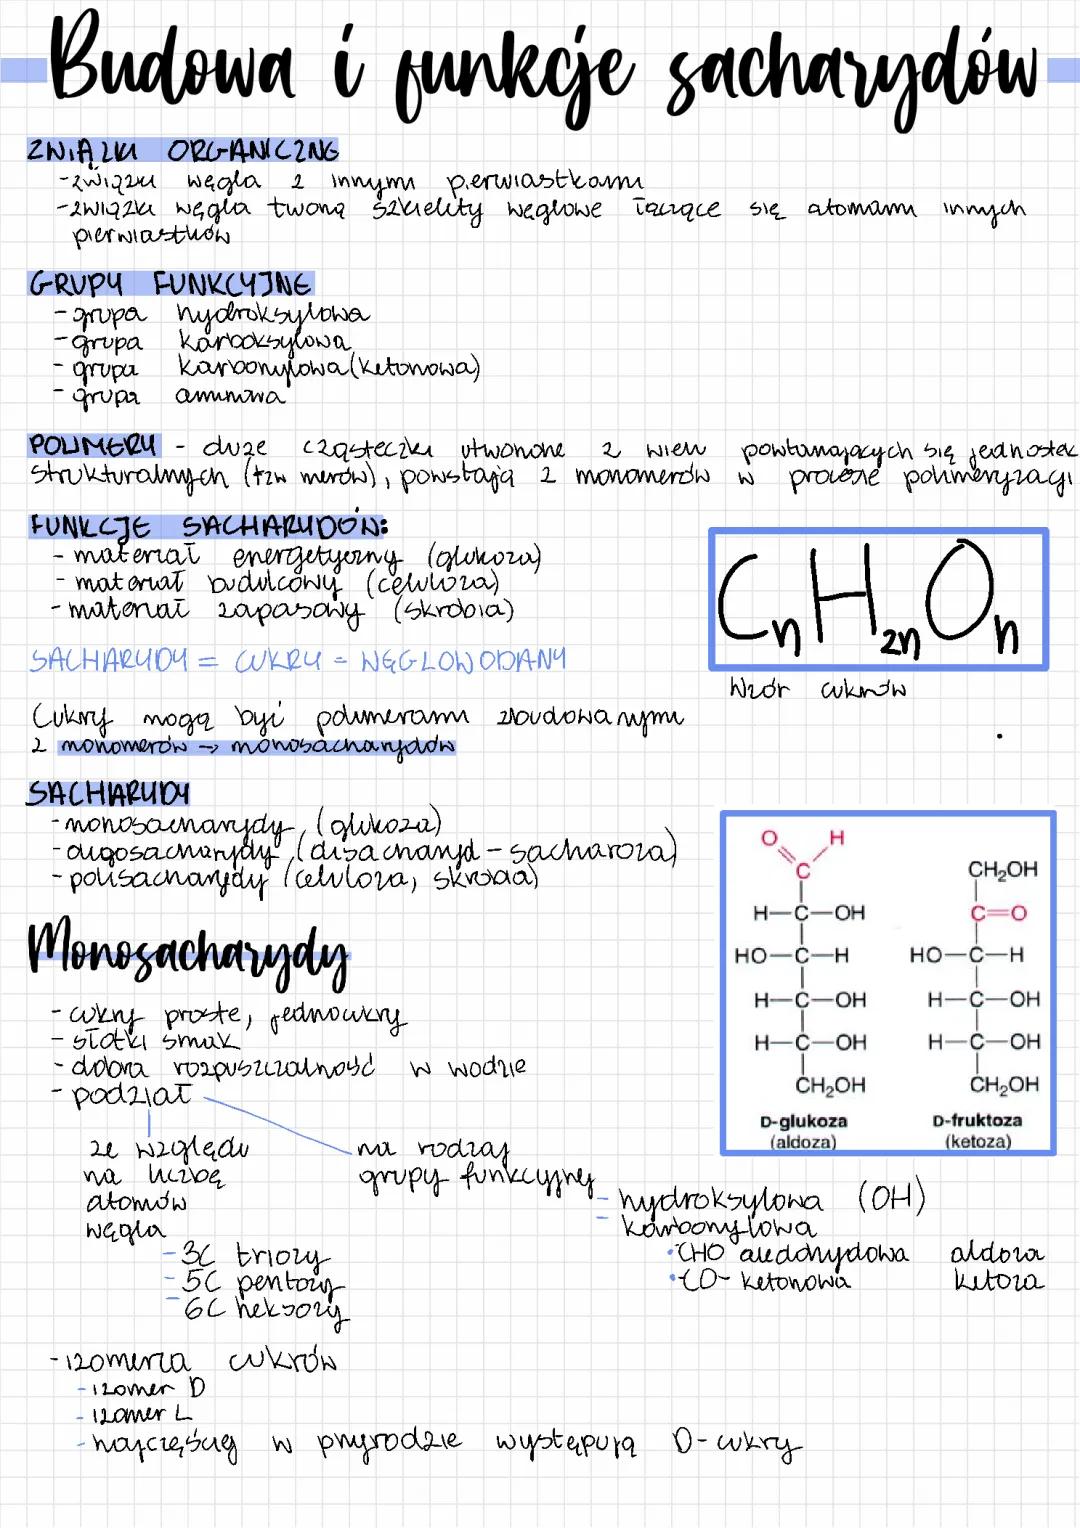 Budowa i funkcje sacharydów
ZWIĄZKI ORGANICZNE
-związki węgla z innymi pierwiastkami
-związki węgla tworzą szkielety węglowe łączące się atomami innych
pierwiastków
GRUPY FUNKCYJNE
- grupa hydroksylowa
- grupa karboksylowa
- grupa karbonylowa (ketonowa)
- grupa aminowa
POLIMERY - duże cząsteczki utworzone z wielu powtarzających się jednostek
strukturalnych (tzw merów), powstają z monomerów w procesie polimeryzacji
FUNKCJE SACHARYDÓW:
- materiał energetyczny (glukoza)
- materiał budulcowy (celuloza)
- materiał zapasowy (skrobia)
CnH2nOn
Wzór cukrów
SACHARYDY = CUKRY = WĘGLOWODANY
Cukry mogą być polimerami zbudowanymi
z monomerów → monosacharydów
SACHARYDY
- monosacharydy (glukoza)
- oligosacharydy (disacharyd - sacharoza)
- polisacharydy (celuloza, skrobia)
O H
C
H-C-OH
HO-C-H
H-C-OH
H-C-OH
CH₂OH
D-glukoza
(aldoza)
CH₂OH
C=O
HO-C-H
H-C-OH
H-C-OH
CH₂OH
D-fruktoza
(ketoza)
Monosacharydy
- cukry proste, jednocukry
- słodki smak
- dobra rozpuszczalność w wodzie
- podział
ze względu
na liczbę
atomów
węgla
- 3C triozy
- 5C pentozy
- 6C heksozy
na rodzaj
grupy funkcyjnej
- hydroksylowa (OH)
- karbonylowa
•CHO aldehydowa aldoza
•CO- ketonowa ketoza
- izomeria cukrów
- izomer D
- izomer L
- najczęściej w przyrodzie występują D-cukry